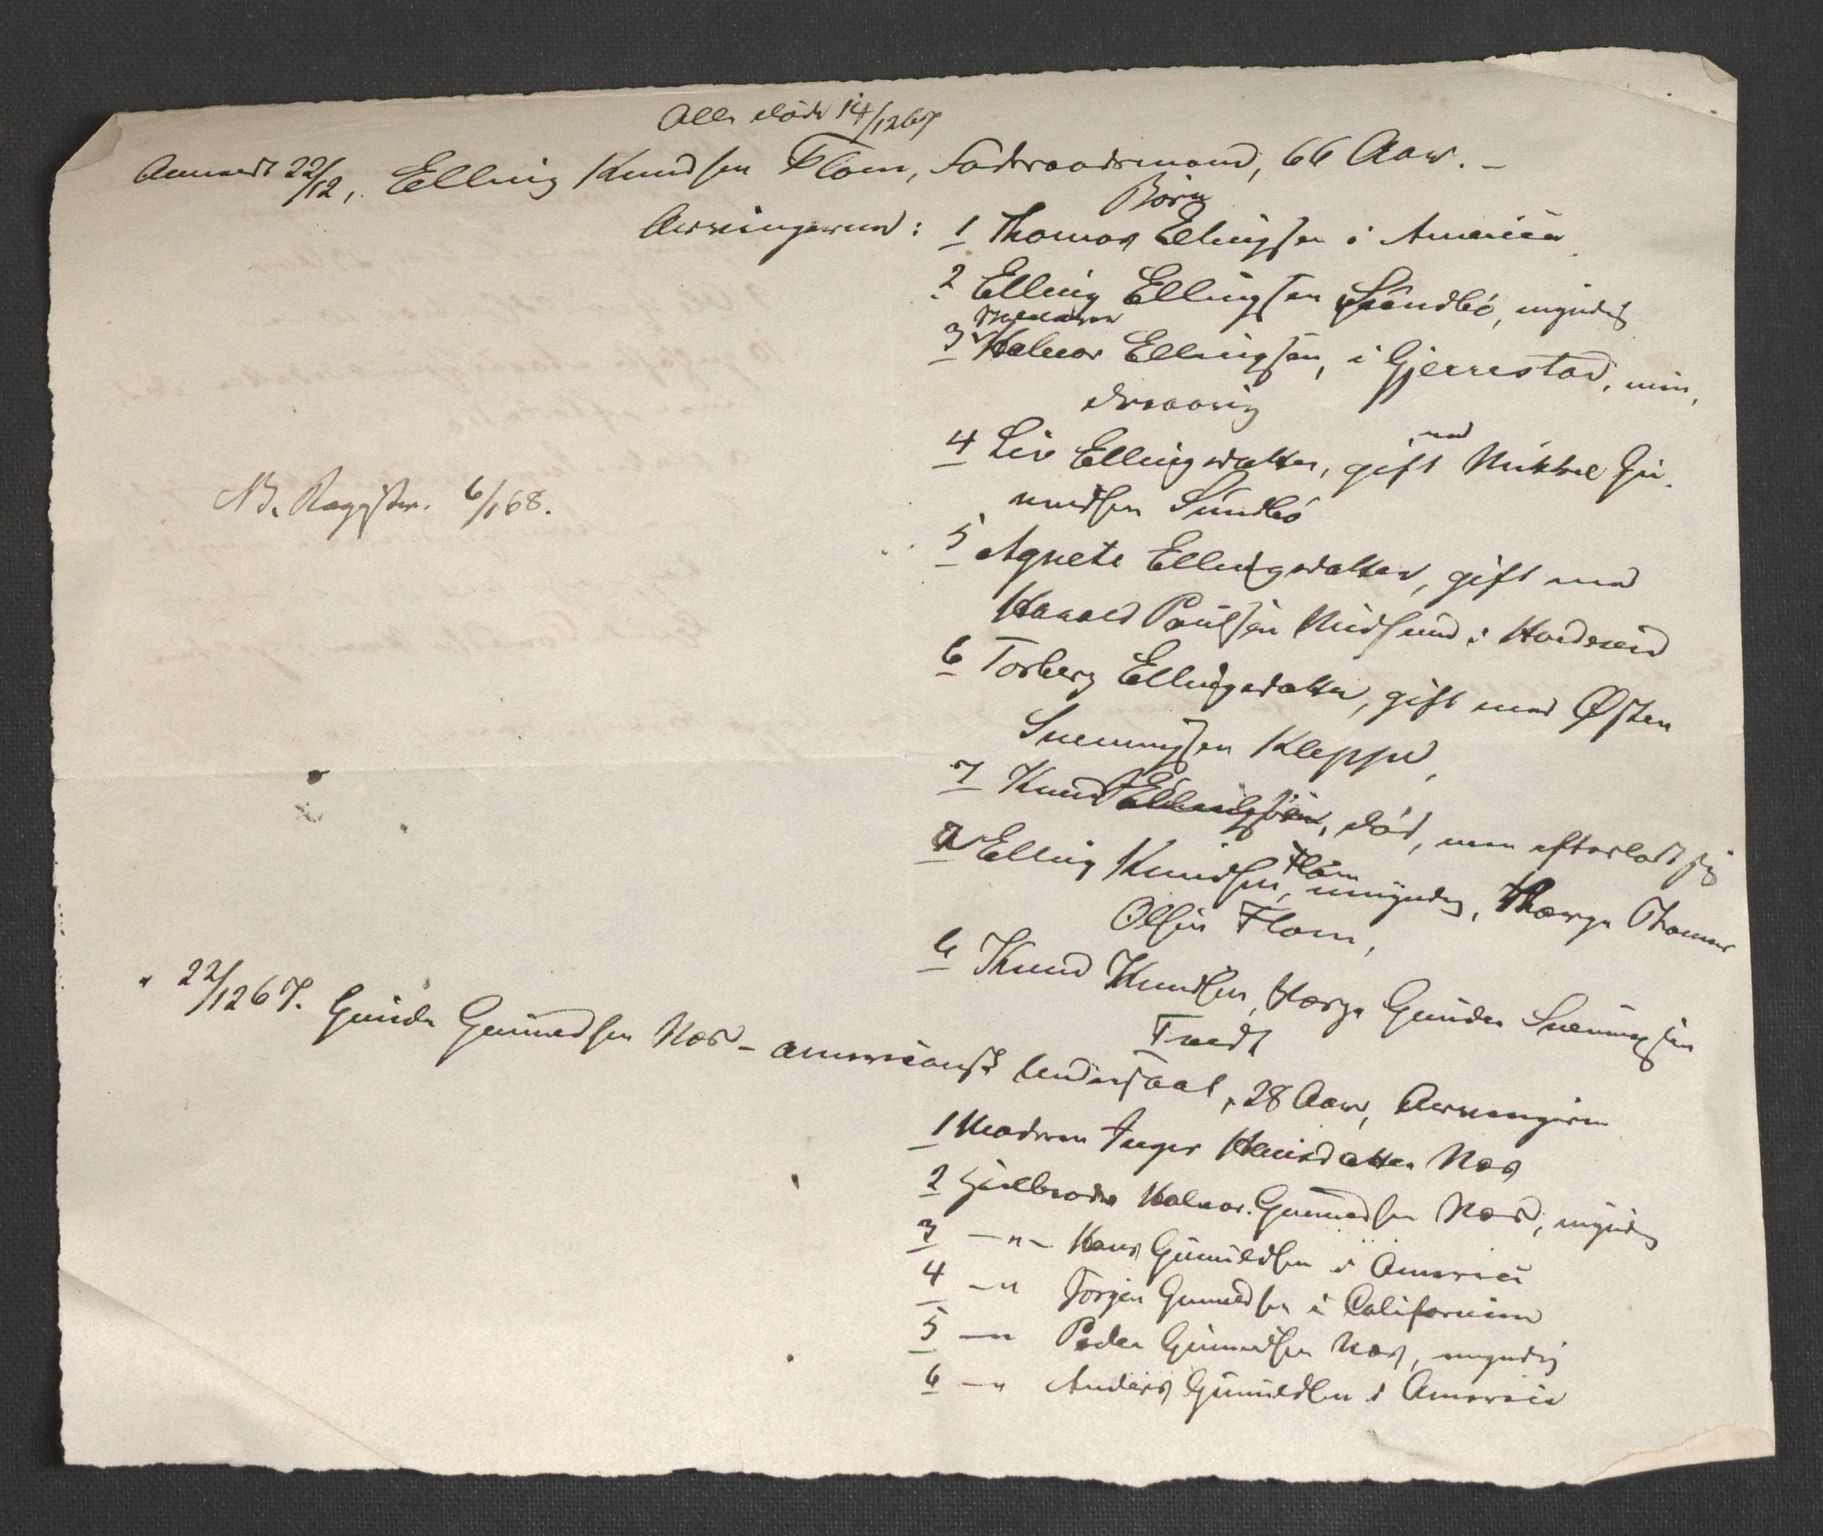 Alle døde 14/12 67
Anmeldt 22/12, Elling Knudsen Flom, Føderaadsmand, 66 Aar. –
Børn
Arvingerne: 1 Thomas Ellingsen i America
2 Elling Ellingsen Sundbø, myndig
3 Halvor Ellingsen, i Gjerrestad, min,
dreaarig
4 Liv Ellingsdatter, gift med Mikkel Gu-
nuldsen Sundbø
5 Agnete Ellingsdatter, gift med
Harald Poulsen Midsund i Hvideseid
NB. Registr. 6/1 68.
6 Torberg Ellingsdatter, gift med Østen
Sveinungsen Kleppe,
7 Knud Ellingsen, død, men efterladt sig
a Elling Knudsen Flom, umyndig, Værge Thomas
Olsen Flom,
b Knud Knudsen, Værge Gunder Sveinungsen
Tvedt
" 22/12 67. Gunder Gunuldsen Næs – americansk Undersaat, 28 Aar, Arvingerne
1 Moderen Inger Hansdatter Næs
2 Helbroder Halvor Gunuldsen Næs, myndig
3 —"— Hans Gunuldsen i America
4 —" Jørgen Gunuldsen i Californien
5 —" Peder Gunuldsen Næs, myndig
6 —" Anders Gunuldsen i America